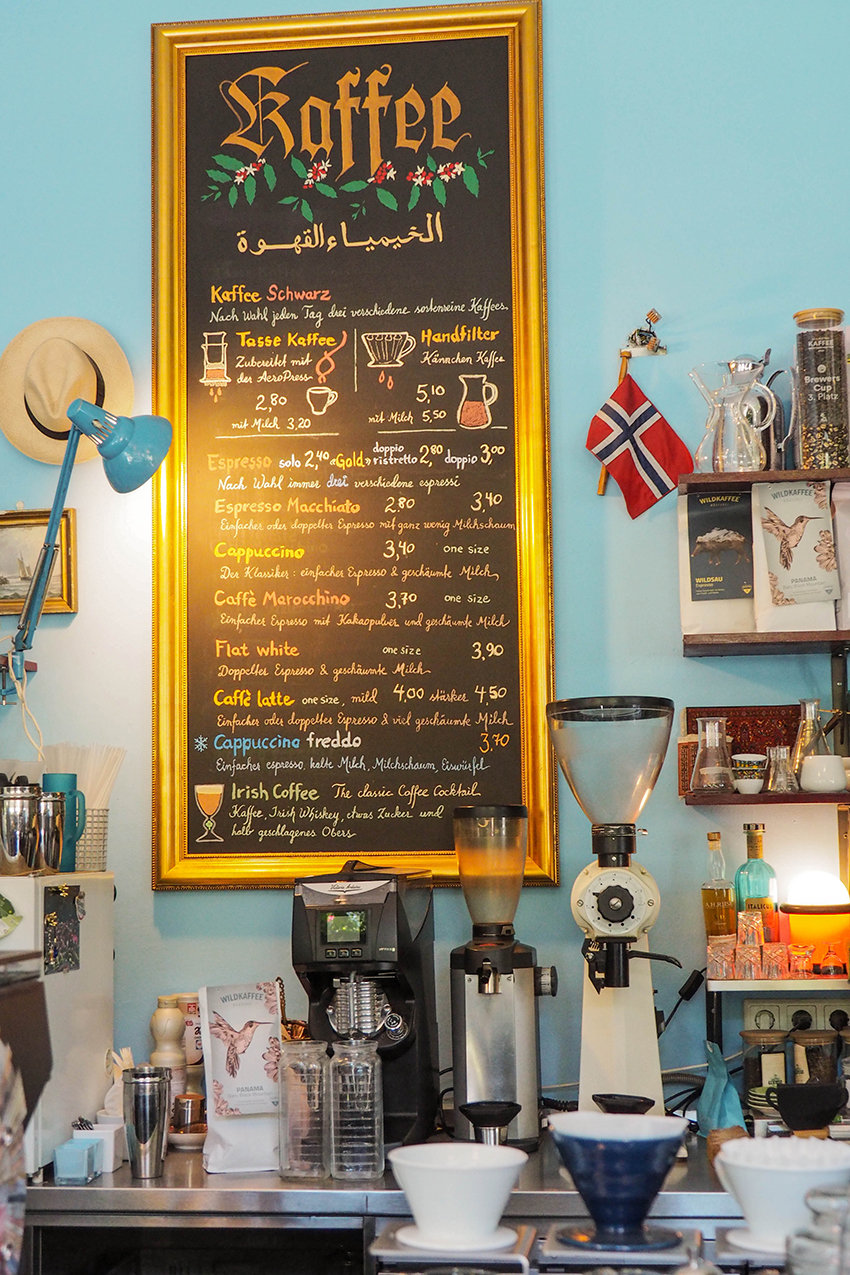 Kaffee
الخيمياء القهوة
Kaffee Schwarz
Nach Wahl jeden Tag drei verschiedene sortenreine Kaffees.
Tasse Kaffee
Zubereitet mit
der AeroPress
2,80
mit Milch 3,20
Handfilter
Kännchen Kaffee
5,10
mit Milch 5,50
Espresso solo 2,40 «Gold» doppio ristretto 2,80 doppio 3,00
Nach Wahl immer drei verschiedene espressi
Espresso Macchiato 2.80 3,40
Einfacher oder doppelter Espresso mit ganz wenig Milchschaum
Cappuccino 3,40 one size
Der Klassiker: einfacher Espresso & geschäumte Milch
Caffè Marocchino 3,70 one size
Einfacher Espresso mit Kakaopulver und geschäumte Milch
Flat white one size 3,90
Doppelter Espresso & geschäumte Milch
Caffè latte one size, mild 4,00 stärker 4,50
Einfacher oder doppelter Espresso & viel geschäumte Milch
Cappuccino freddo 3,70
Einfacher espresso, kalte Milch, Milchschaum, Eiswürfel
Irish Coffee The classic Coffee Cocktail
Kaffee, Irish Whiskey, etwas Zucker und
halb geschlagenes Obers
KAFFEE
Brewers
Cup
3. Platz
WILDKAFFEE
WILDSAU
Espresso
WILDKAFFEE
PANAMA
ITALICUS
WILDKAFFEE
PANAMA